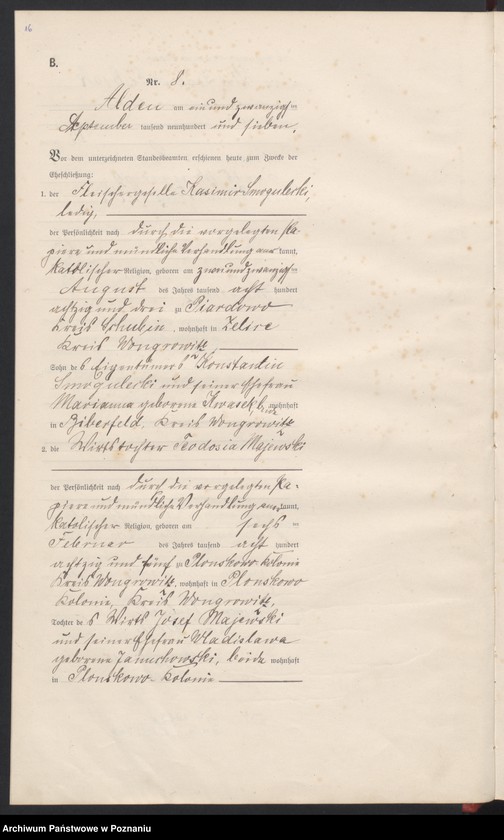 16
B.
Nr. 8.
Alden am ein und zwanzigsten
September tausend neunhundert und sieben.
Vor dem unterzeichneten Standesbeamten erschienen heute zum Zwecke der
Eheschließung:
1. der Fleischergeselle Kasimir Smogulecki,
ledig,
der Persönlichkeit nach durch die vorgelegten Pa-
piere und mündliche Verhandlung anerkannt,
katolischer Religion, geboren am zwei und zwanzigsten
August des Jahres tausend acht hundert
achtzig und drei zu
Kreis Schubin, wohnhaft in Zelice
Kreis Wongrowitz,
Sohn des Eigentümers Konstantin
Smogulecki und seiner Ehefrau
Marianna geborene wohnhaft
in Biberfeld, Kreis Wongrowitz
2. die Wirtstochter Teodosia Majewski
der Persönlichkeit nach durch die vorgelegten Pa-
piere und mündliche Verhandlung anerkannt,
katolischer Religion, geboren am sechs ten
Februar des Jahres tausend acht hundert
achtzig und fünf zu Plonskowo Kolonie
Kreis Wongrowitz, wohnhaft in Plonskowo
Kolonie, Kreis Wongrowitz,
Tochter des Wirts Josef Majewski
und seiner Ehefrau Wladislawa
geborene beide wohnhaft
in Plonskowo-Kolonie
Archiwum Państwowe w Poznaniu